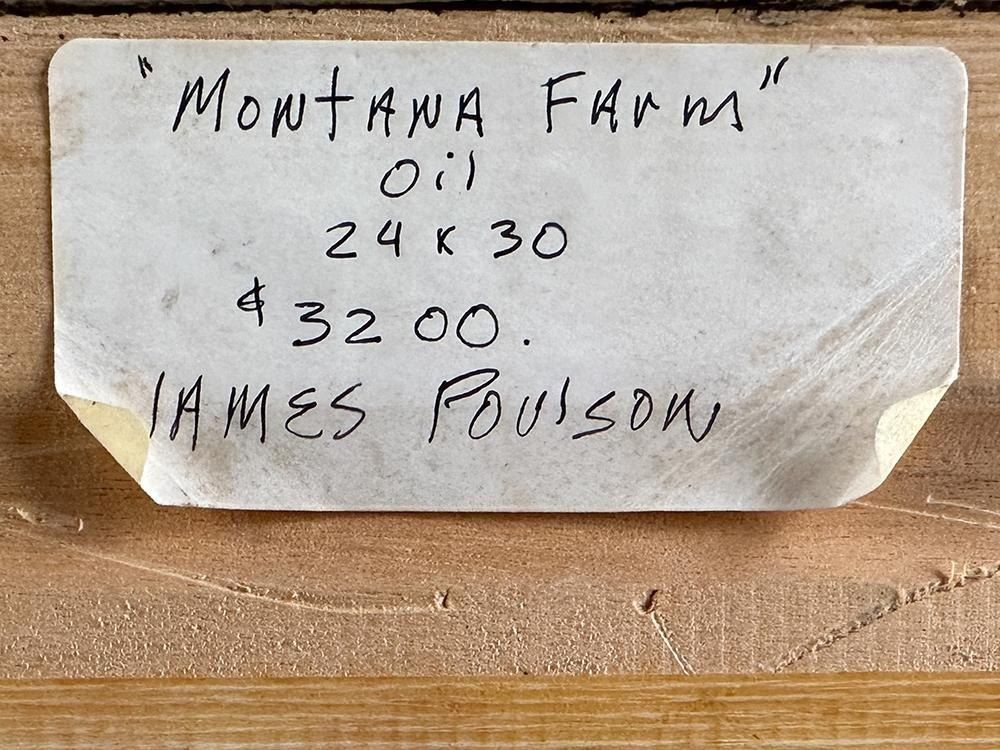 "Montana Farm"
Oil
24 x 30
$3200.
James Poulson